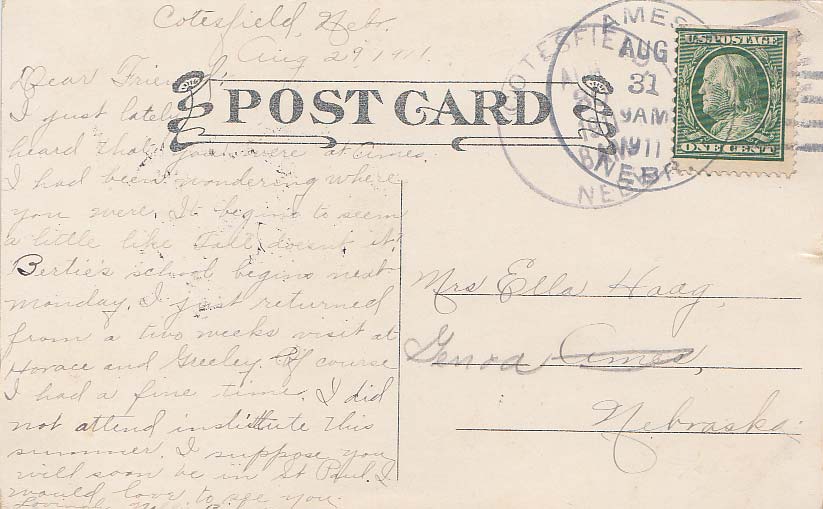 Cotesfield, Nebr.
Aug 29, 1911.
Dear Friend:
I just lately
heard that you were at Ames.
I had been wondering where
you were. It begins to seem
a little like Fall doesn't it?
Bertie's school begins next
monday. I just returned
from a two weeks visit at
Horace and Greeley. Of course
I had a fine time. I did
not attend institute this
summer. I suppose you
will soon be in St Paul. I
would love to see you.
Lovingly
POST CARD
COTESFIELD
NEBR
AMES
AUG
31
9AM
1911
NEBR.
U.S. POSTAGE
ONE CENT
Mrs Ella Haag,
Genoa Ames,
Nebraska.